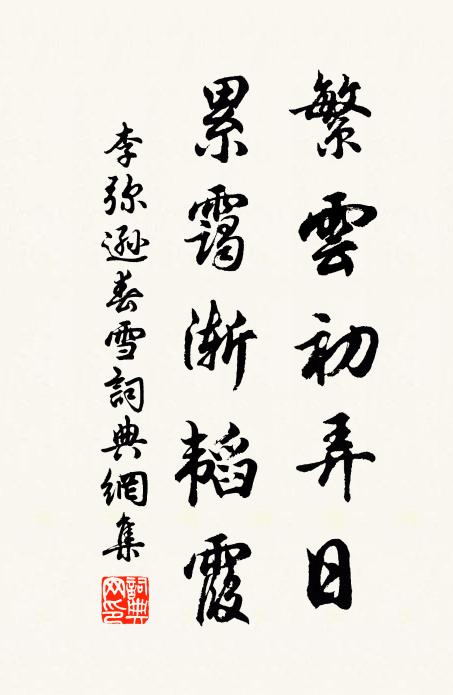 繁雲初弄日
累靄漸韜霞
李弥遜春雪詞典網集
詞典網印